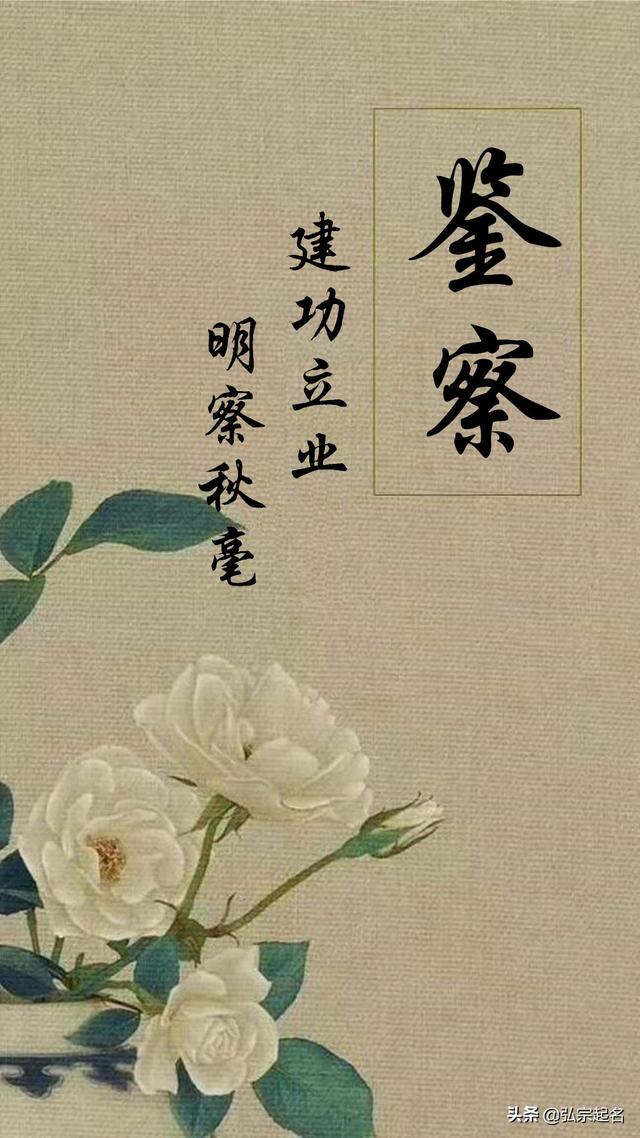 鉴察
建功立业
明察秋毫
头条 @弘宗起名